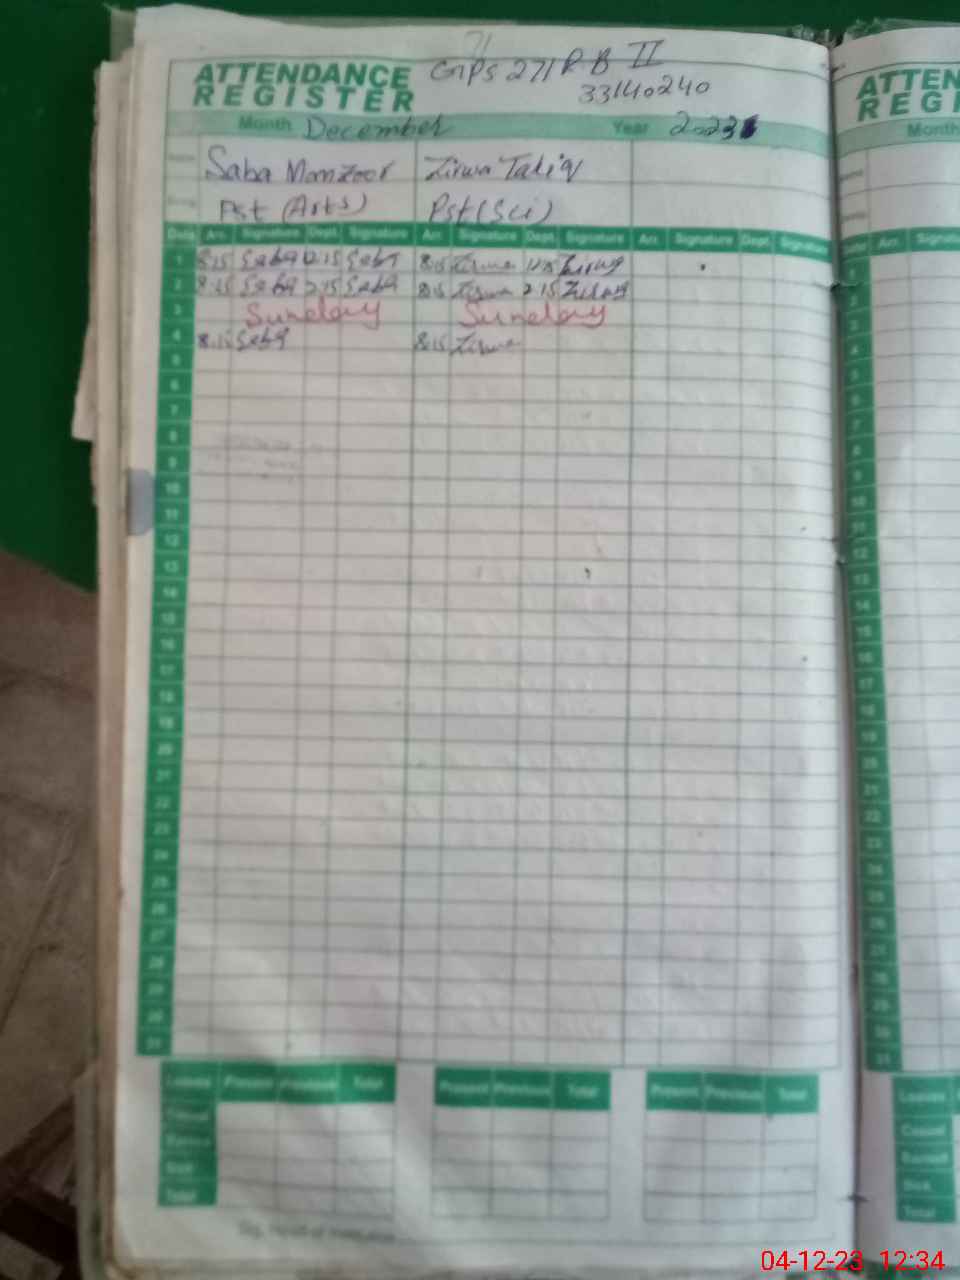 GPS 271 R-B II
33140240
ATTENDANCE REGISTER
Month December Year 2023
Saba Manzoor Zirwa Tariq
Pst (Arts) Pst (Sci)
Date Arr. Signature Dept. Signature Arr. Signature Dept. Signature Arr. Signature Dept. Signature
1 8:15 Saba 12:15 Saba 8:15 Zirwa 12:15 Zirwa
2 8:15 Saba 2:15 Saba 8:15 Zirwa 2:15 Zirwa
3 Sunday Sunday
4 8:15 Saba 8:15 Zirwa
5
6
7
8
9
10
11
12
13
14
15
16
17
18
19
20
21
22
23
24
25
26
27
28
29
30
31
Leaves Present Previous Total Present Previous Total Present Previous Total
Casual
Earned
Sick
Total
ATTEN
REGI
Month
Arr. Signatu
Leaves
Casual
Earned
Sick
Total
04-12-23 12:34